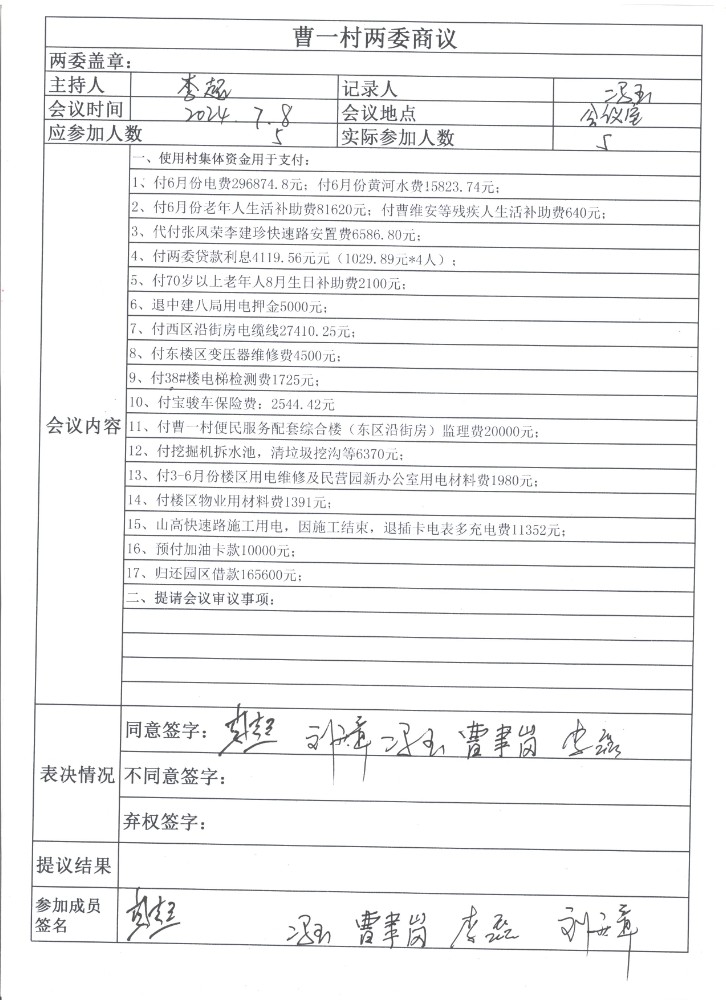 曹一村两委商议
两委盖章：
主持人 李磊 记录人 冯玉
会议时间 2024.7.8 会议地点 会议室
应参加人数 5 实际参加人数 5
会议内容
一、使用村集体资金用于支付：
1、付6月份电费296874.8元；付6月份黄河水费15823.74元；
2、付6月份老年人生活补助费81620元；付曹维安等残疾人生活补助费640元；
3、代付张凤荣李建珍快速路安置费6586.80元；
4、付两委贷款利息4119.56元元（1029.89元*4人）；
5、付70岁以上老年人8月生日补助费2100元；
6、退中建八局用电押金5000元；
7、付西区沿街房电缆线27410.25元；
8、付东楼区变压器维修费4500元；
9、付38#楼电梯检测费1725元；
10、付宝骏车保险费：2544.42元
11、付曹一村便民服务配套综合楼（东区沿街房）监理费20000元；
12、付挖掘机拆水池，清垃圾挖沟等6370元；
13、付3-6月份楼区用电维修及民营园新办公室用电材料费1980元；
14、付楼区物业用材料费1391元；
15、山高快速路施工用电，因施工结束，退插卡电表多充电费11352元；
16、预付加油卡款10000元；
17、归还园区借款165600元；
二、提请会议审议事项：
表决情况
同意签字： 冯玉 曹聿岗 李磊
不同意签字：
弃权签字：
提议结果
参加成员签名 冯玉 曹聿岗 李磊